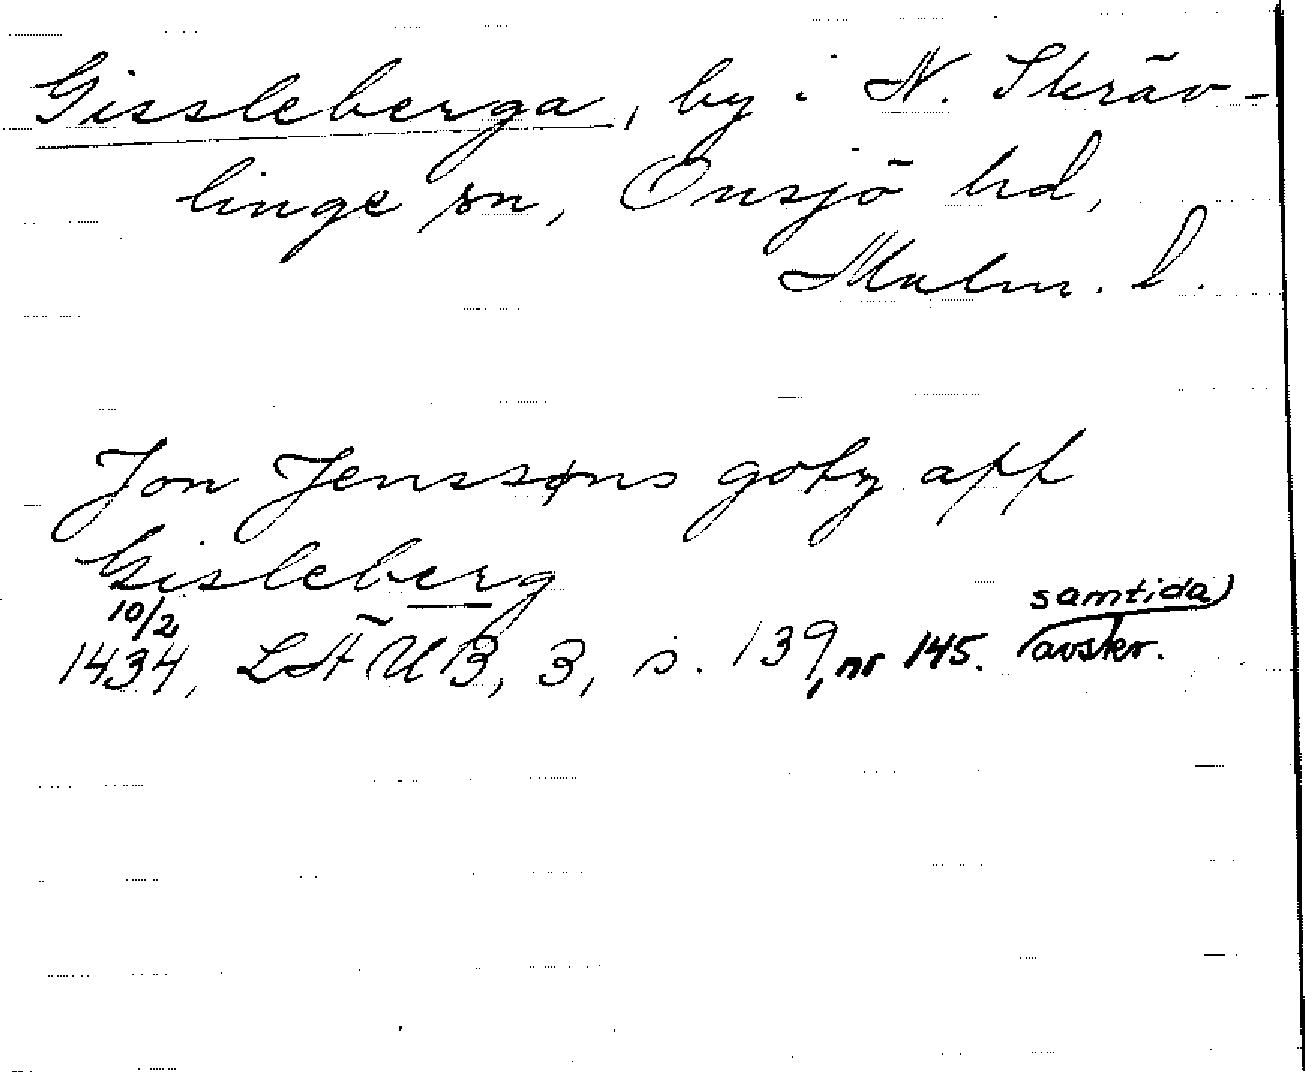 Gissleberga, by i N. Skräv-
linge sn, Onsjö hd,
Malm. l.
Jon Jenssøns gotz aff
Gisleberg
10/2
1434, LÄUB, 3, s. 139, nr 145. samtida avskr.